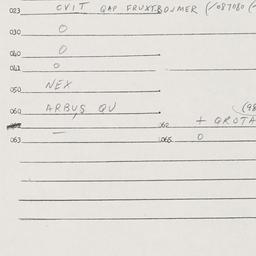 023 OVIT QAP FRUXTBOUMER (1087080 (
030 O
040 O
041 O
050 NEX
060 ARBUS QU (98
062 + GROTA
063 — 065 O